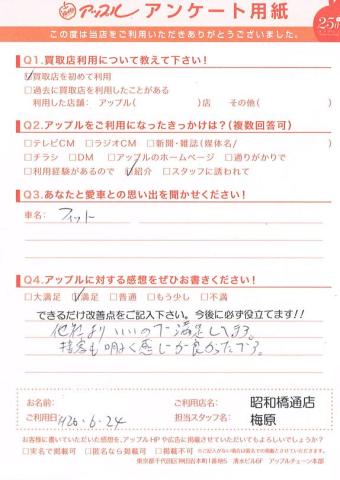 アップル アンケート用紙
25th
この度は当店をご利用いただきありがとうございました。
Q1.買取店利用について教えて下さい!
☑買取店を初めて利用
□過去に買取店を利用したことがある
利用した店舗: アップル( )店 その他( )
Q2.アップルをご利用になったきっかけは?(複数回答可)
□テレビCM □ラジオCM □新聞・雑誌(媒体名/ )
□チラシ □DM □アップルのホームページ □通りがかりで
□利用経験があるので ☑紹介 □スタッフに誘われて
Q3.あなたと愛車との思い出を聞かせください!
車名: フィット
Q4.アップルに対する感想をぜひお書きください!
□大満足 ☑満足 □普通 □もう少し □不満
できるだけ改善点をご記入下さい。今後に必ず役立てます!!
他社よりいいので満足してます。
接客も明るく感じが良かったです。
お名前: ご利用店名: 昭和橋通店
ご利用日: H26・6・24 担当スタッフ名: 梅原
お客様に書いていただいた感想を、アップルHPや広告に掲載させていただいてもよろしいでしょうか?
□実名で掲載可 □匿名なら掲載可 □掲載不可
東京都千代田区神田岩本町1番地5 清水ビル6F アップルチェーン本部